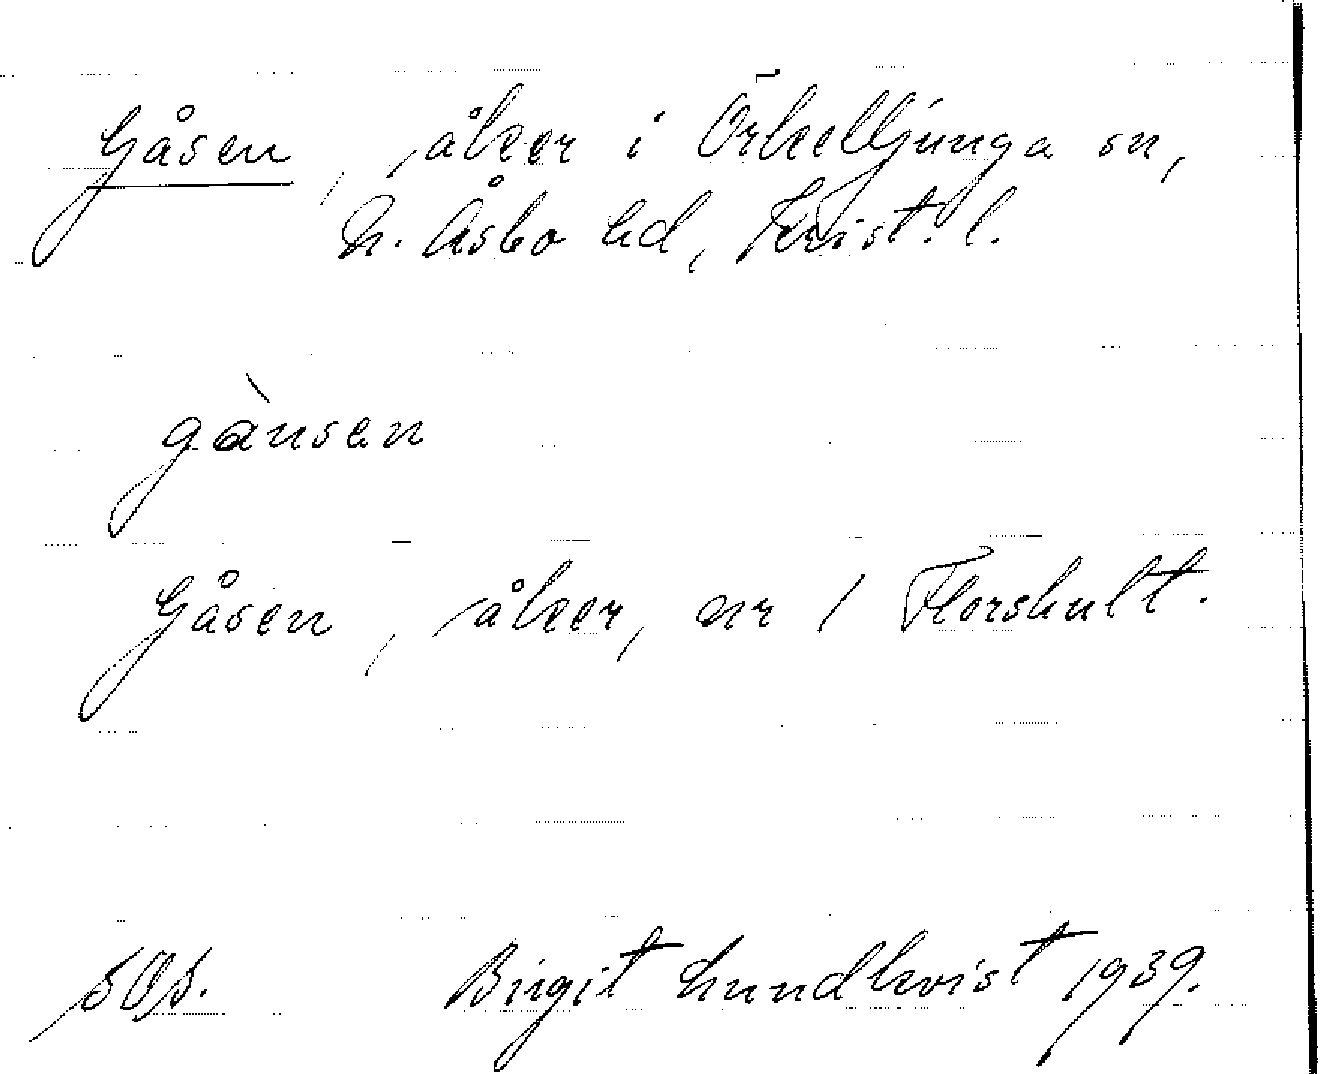 Gåsen, åker i Örkelljunga sn,
N. Åsbo hd, Krist. l.
gànsen
Gåsen, åker, nr 1 Florshult.
SOS. Birgit Lundkvist 1939.